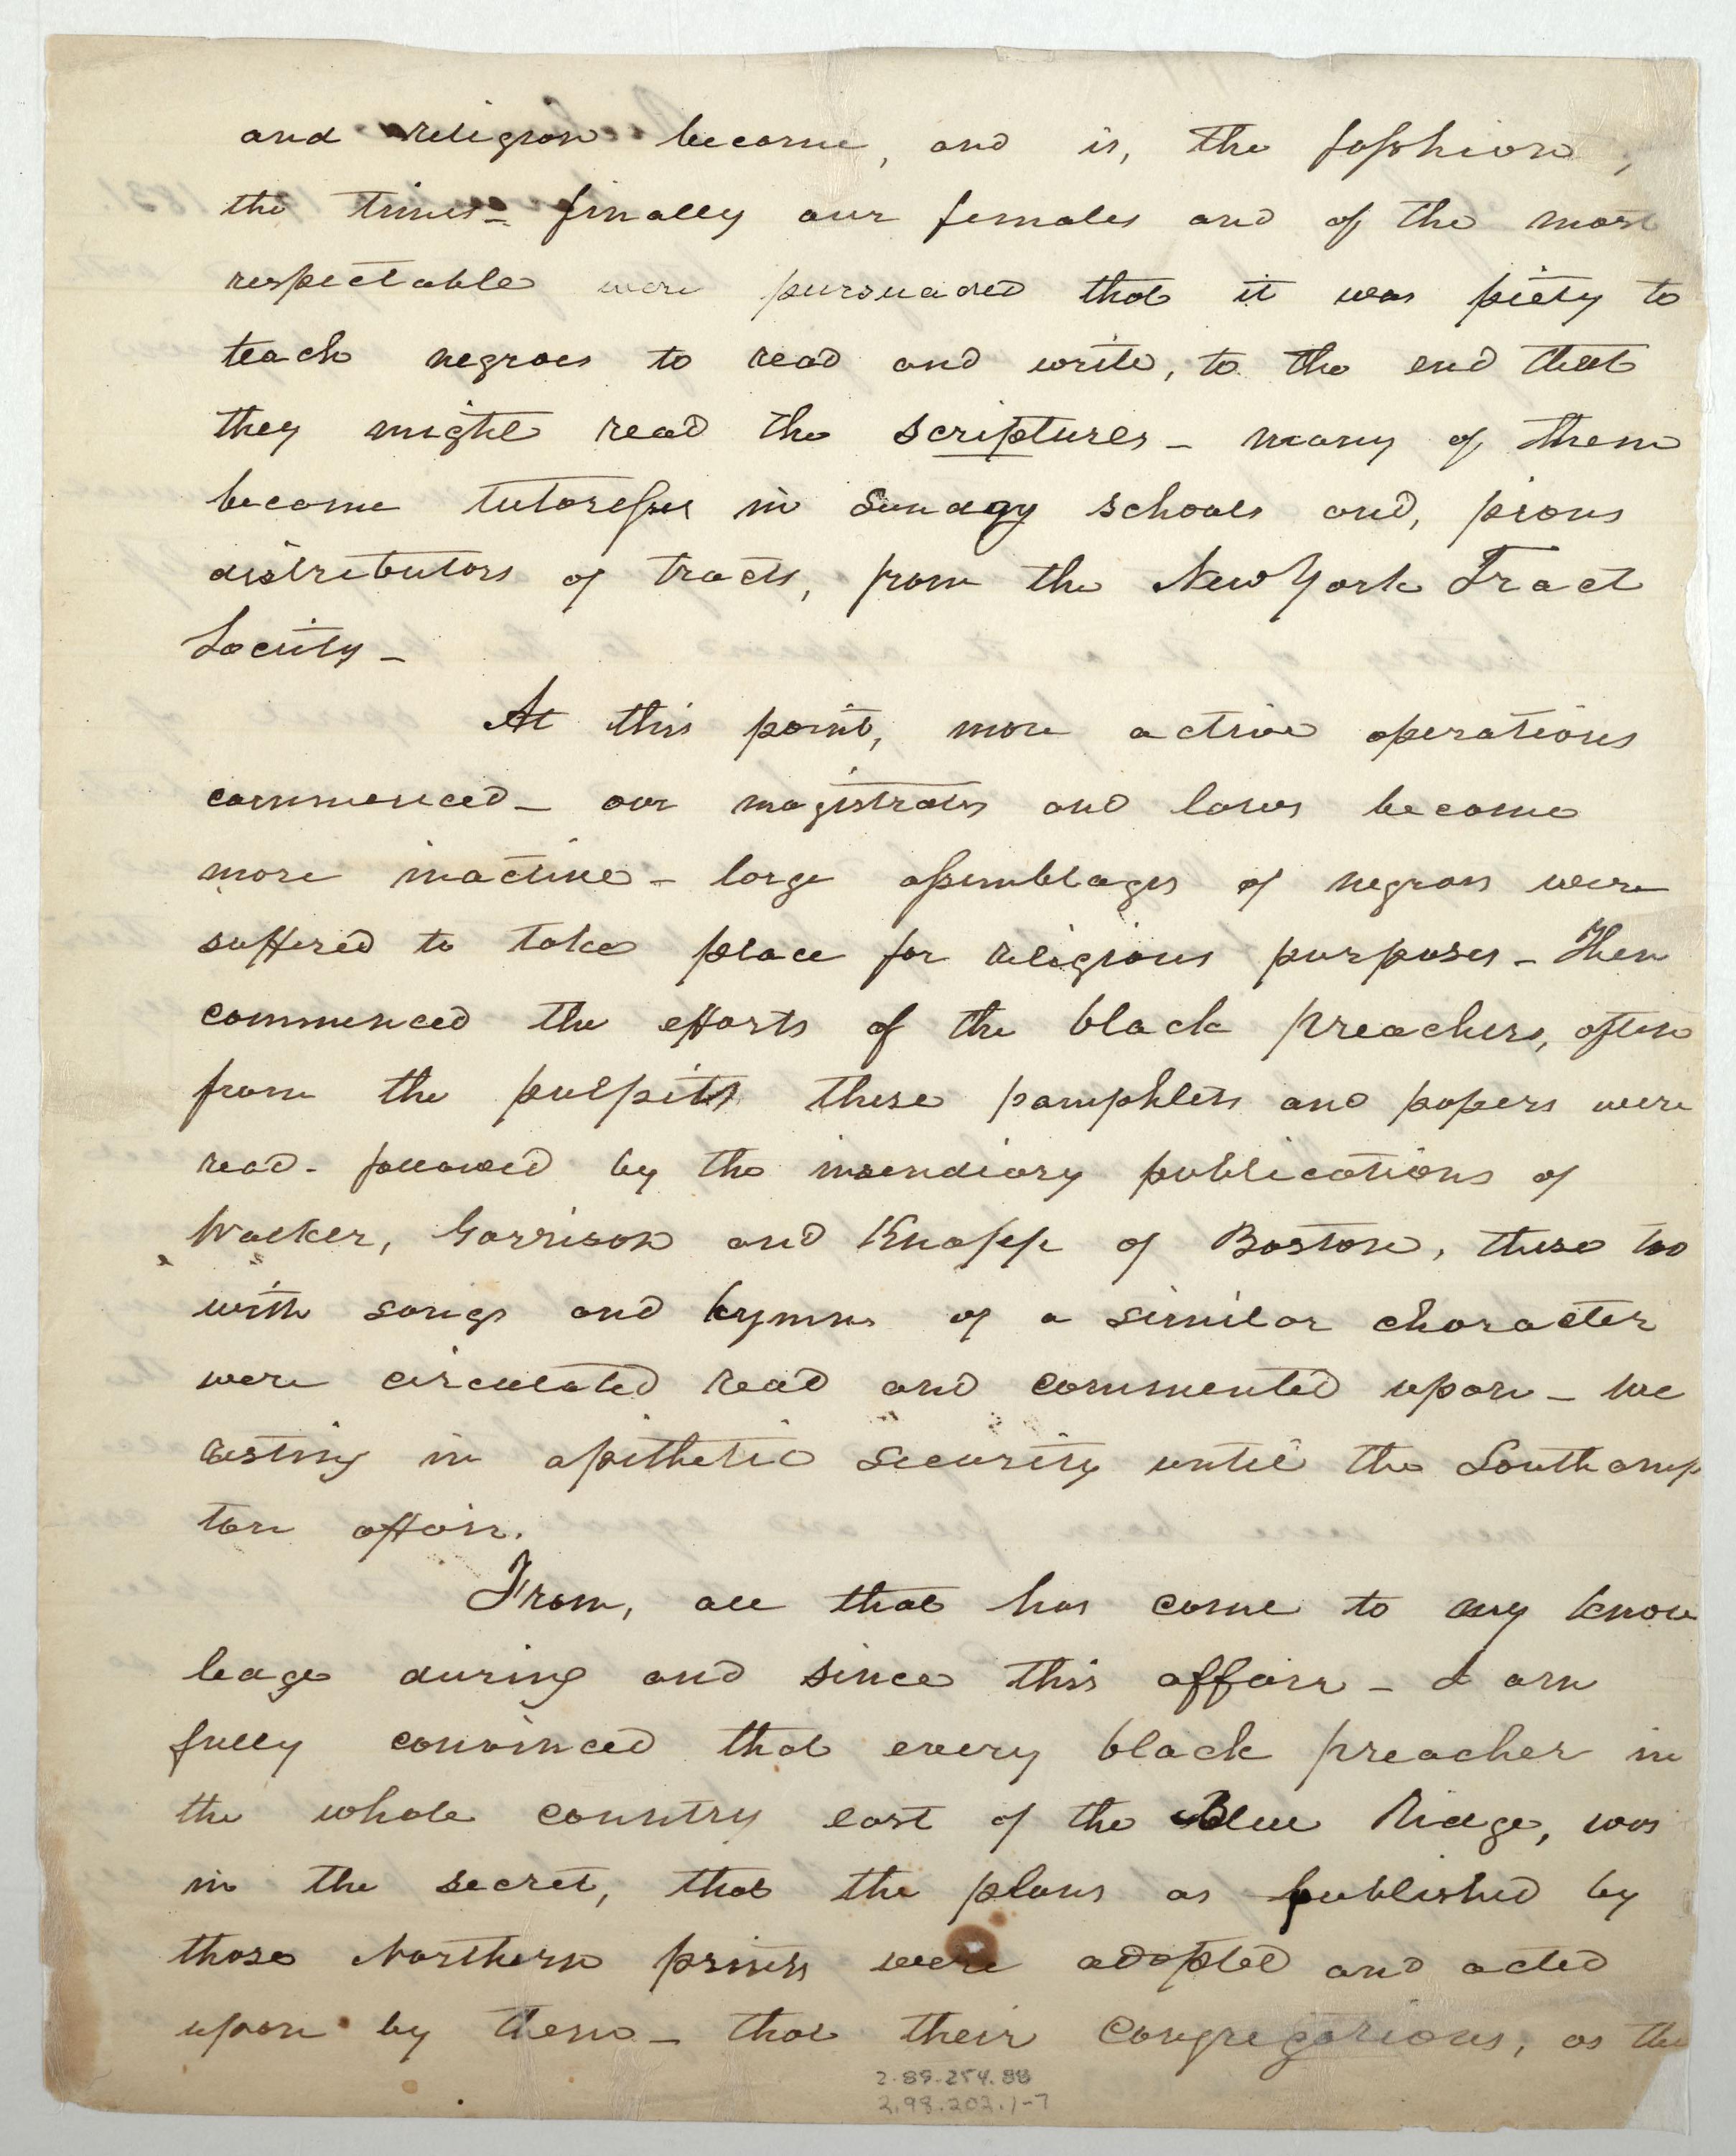 and religion became, and is, the fasshion,
the times – finally our females and of the most
respectable were pursuaded that it was piety to
teach negroes to read and write, to the end that
they might read the scriptures – many of them
became tutoresses in Sunday schools and, pious
distributors of tracts, from the New York Tract
Society –
At this point, more active operations
commenced – our magistrates and laws became
more inactive – large assemblages of negroes were
suffered to take place for religious purposes – Then
commenced the efforts of the black preachers, often
from the pulpits these pamphlets and papers were
read – followed by the incendiary publications of
Walker, Garrison and Knapp of Boston, these too
with songs and hymns of a similar character
were circulated read and commented upon – we
resting in apithetic security until the Southamp
ton affair.
From, all that has come to my know
ledge during and since this affair – I am
fully convinced that every black preacher in
the whole country east of the Blue Ridge, was
in the secret, that the plans as published by
those Northern prints were adopted and acted
upon by them – that their congregations, as the
2.89.254.88
2.98.202.1-7